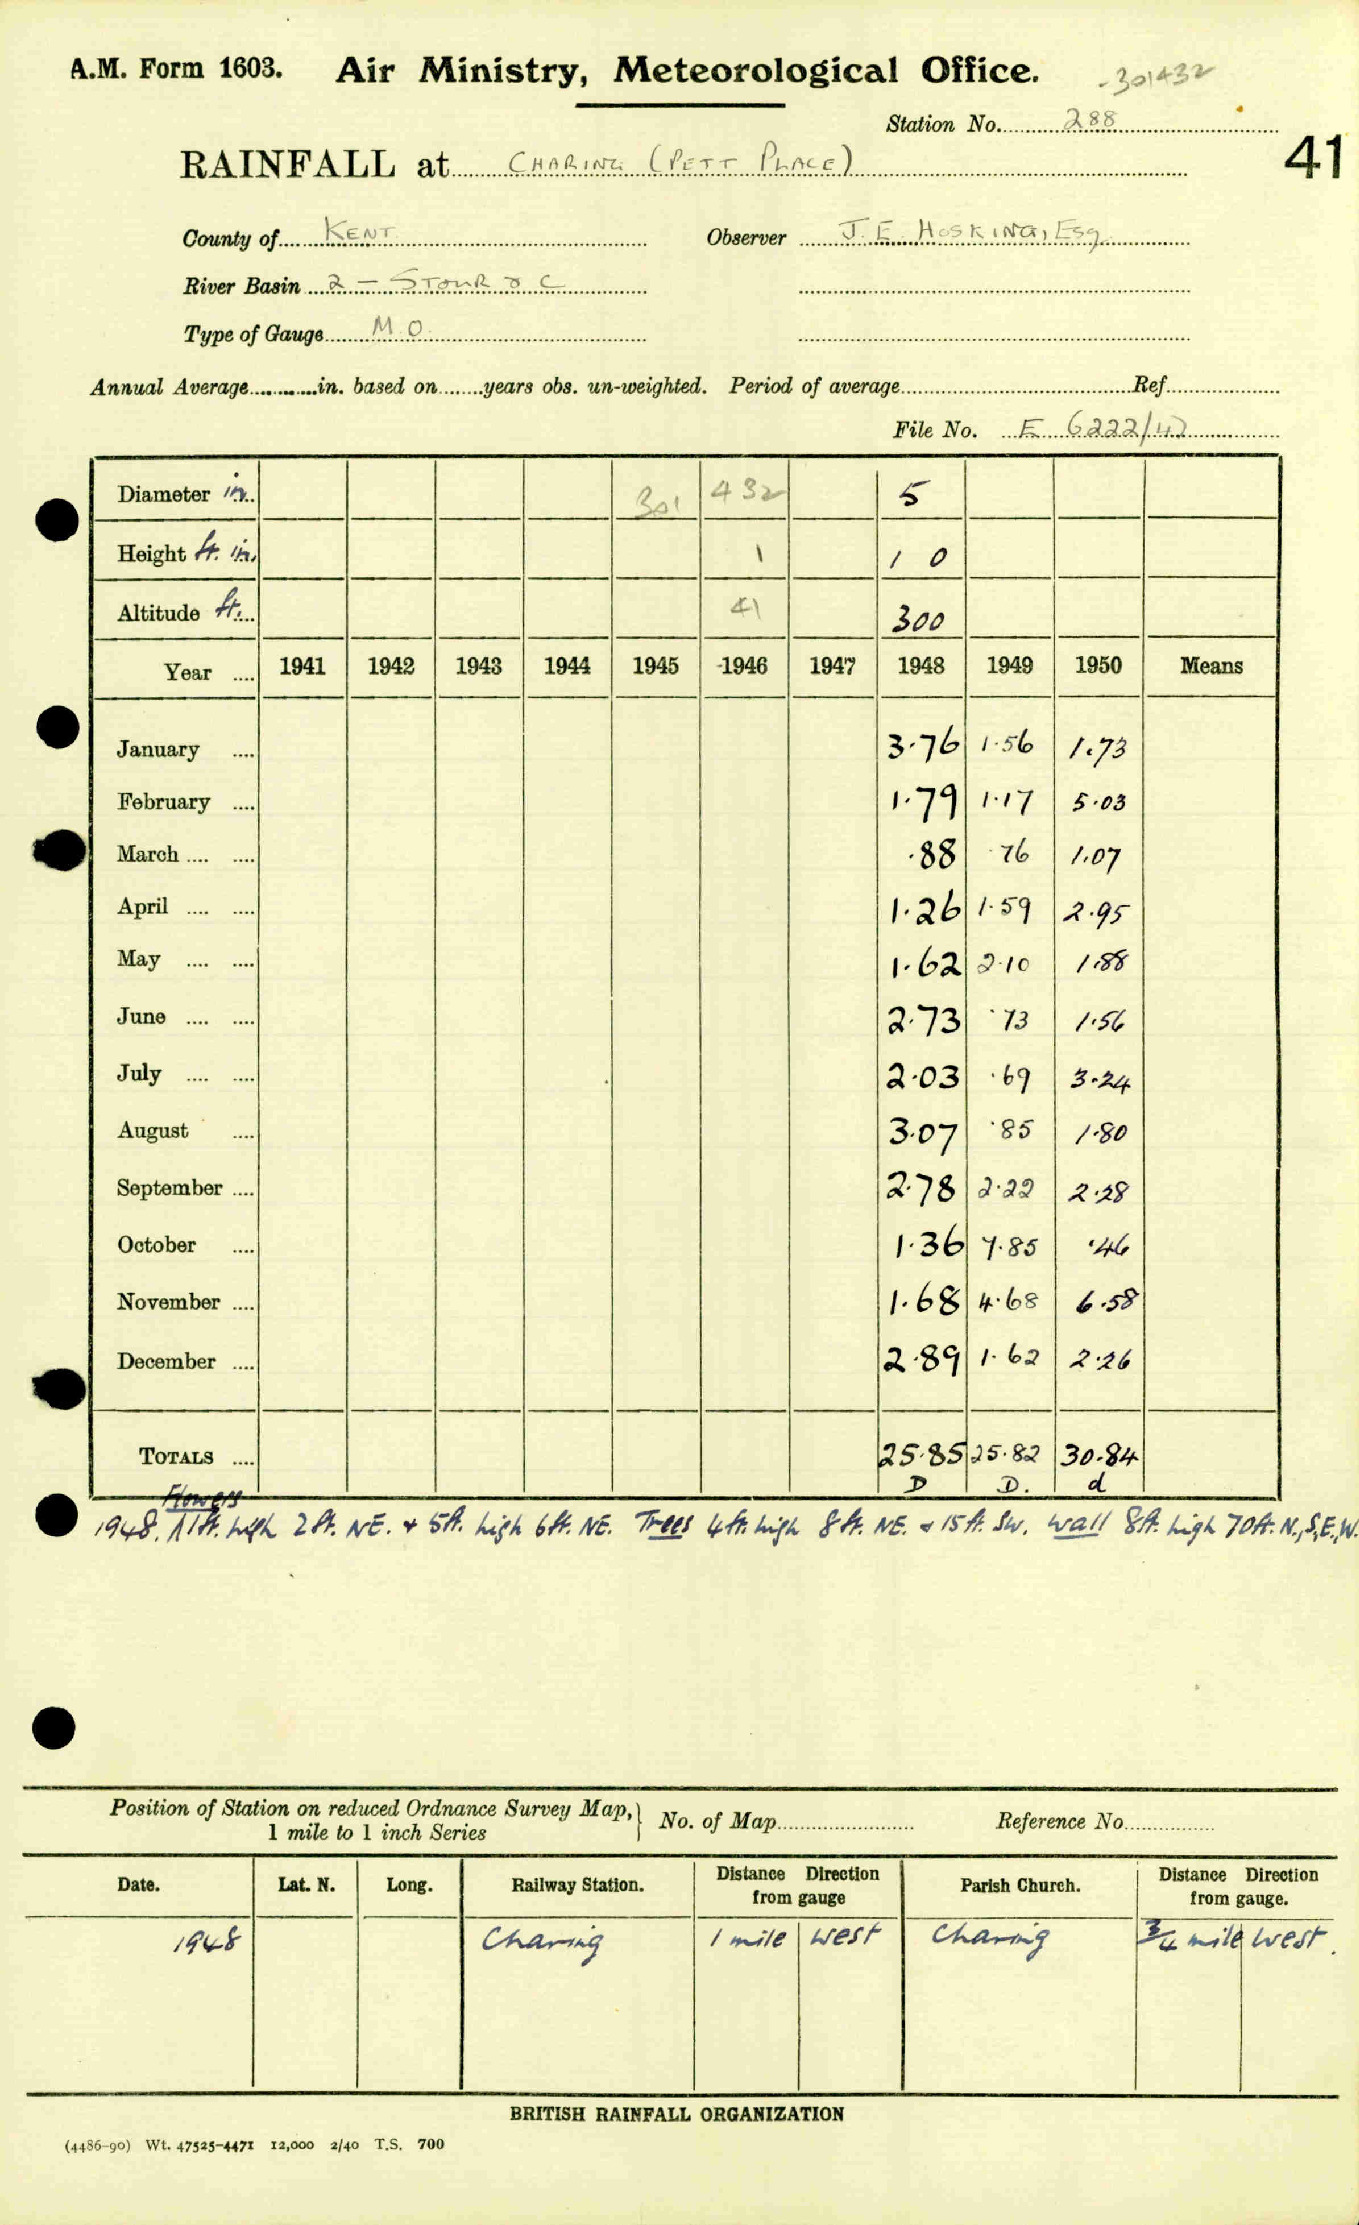 A.M. Form 1603. Air Ministry, Meteorological Office. -301432
Station No. 288
41
RAINFALL at CHARING (PETT PLACE)
County of KENT. Observer J.E. HOSKING, Esq
River Basin 2 - STOUR & C
Type of Gauge M O.
Annual Average in. based on years obs. un-weighted. Period of average Ref
File No. E 6222/47
Diameter in. 301 432 5
Height ft. in. 1 1 0
Altitude ft. 41 300
Year 1941 1942 1943 1944 1945 1946 1947 1948 1949 1950 Means
January 3.76 1.56 1.73
February 1.79 1.17 5.03
March .88 .76 1.07
April 1.26 1.59 2.95
May 1.62 2.10 1.88
June 2.73 .73 1.56
July 2.03 .69 3.24
August 3.07 .85 1.80
September 2.78 2.22 2.28
October 1.36 7.85 .46
November 1.68 4.68 6.58
December 2.89 1.62 2.26
TOTALS 25.85 25.82 30.84
D D. d
Flowers
1948. 1ft. high 2ft. NE. + 5ft. high 6ft. NE. Trees 4ft. high 8ft. NE. + 15ft. SW. Wall 8ft. high 70ft. N., S, E., W.
Position of Station on reduced Ordnance Survey Map, No. of Map Reference No.
1 mile to 1 inch Series
Date. Lat. N. Long. Railway Station. Distance Direction from gauge Parish Church. Distance Direction from gauge.
1948 Charing 1 mile West Charing 3/4 mile West.
BRITISH RAINFALL ORGANIZATION
(4486-90) Wt. 47525-4471 12,000 2/40 T.S. 700